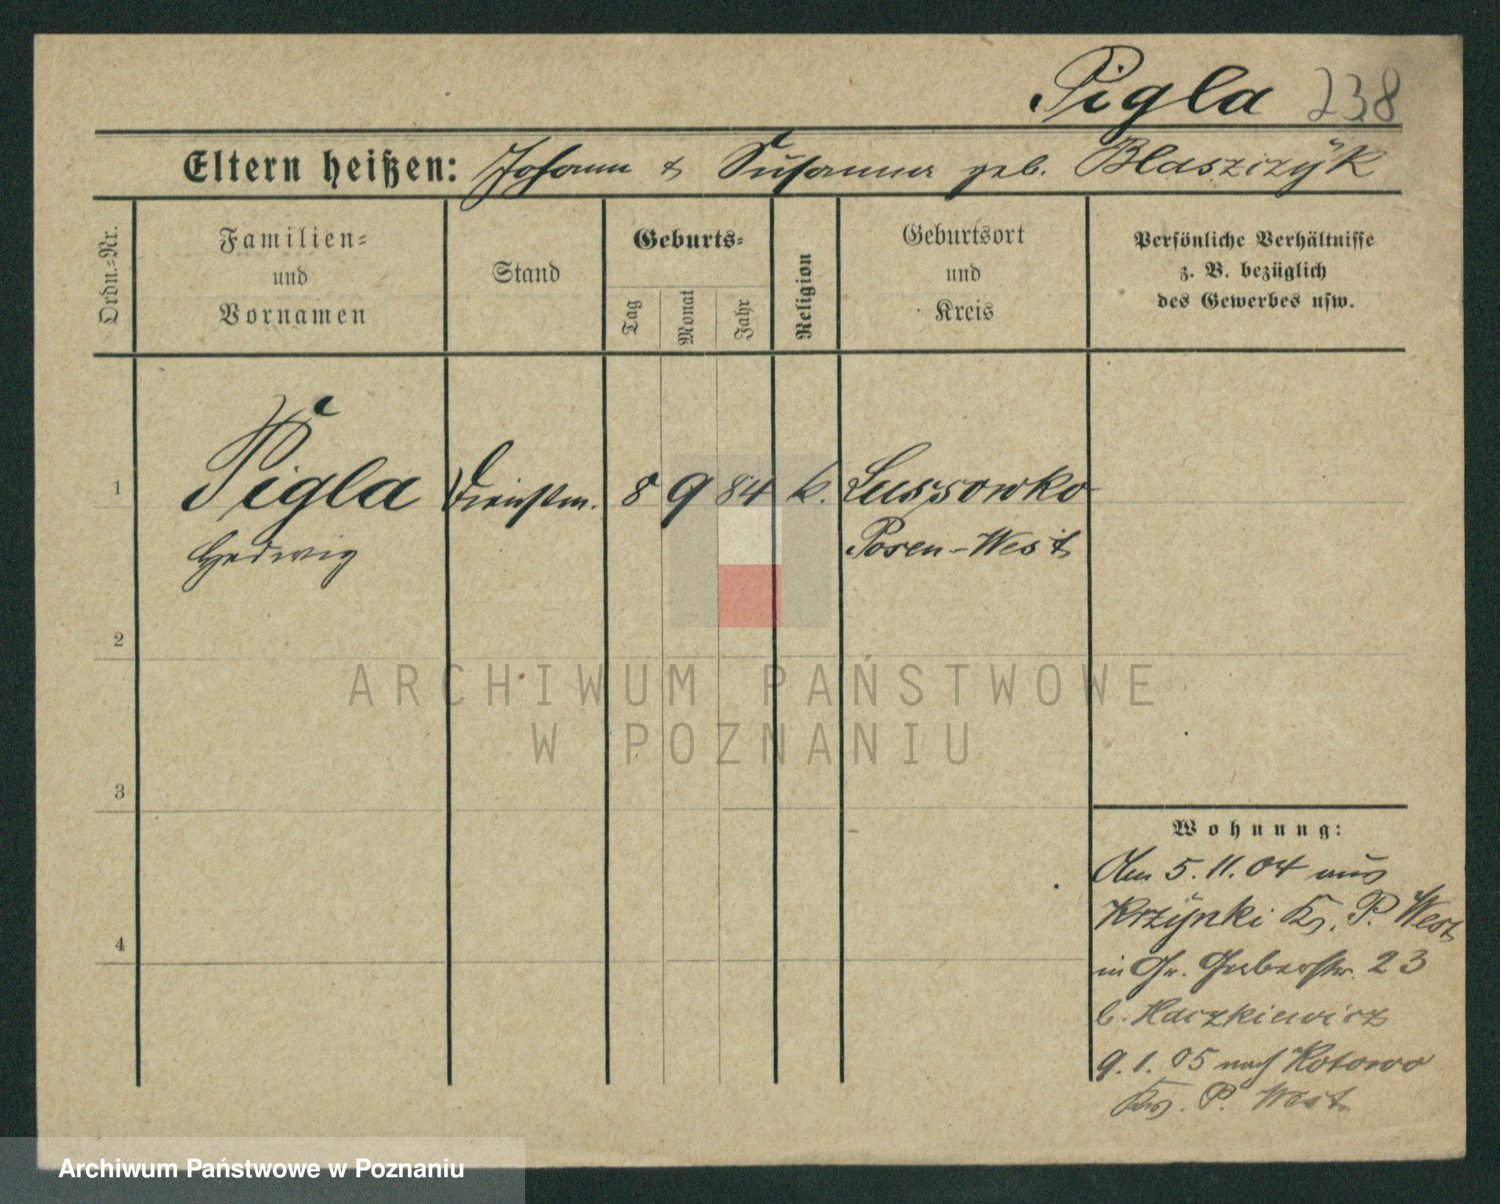 Pigla 238
Eltern heißen: Johann & Susanna geb. Blaszizyk
Ordn.-Nr.
Familien-
und
Vornamen
Stand
Geburts-
Tag
Monat
Jahr
Religion
Geburtsort
und
Kreis
Persönliche Verhältnisse
z. B. bezüglich
des Gewerbes usw.
1 Pigla Dienstm. 8 9 84 k. Lussowko
Hedwig Posen-West
2
3
4
ARCHIWUM PAŃSTWOWE
W POZNANIU
Wohnung:
Am 5.11.04 aus
Krzynki Krs. P. West
in Gr. 23
b. Haczkiewicz
9.1.05 nach Kotowo
Krs. P. West
Archiwum Państwowe w Poznaniu